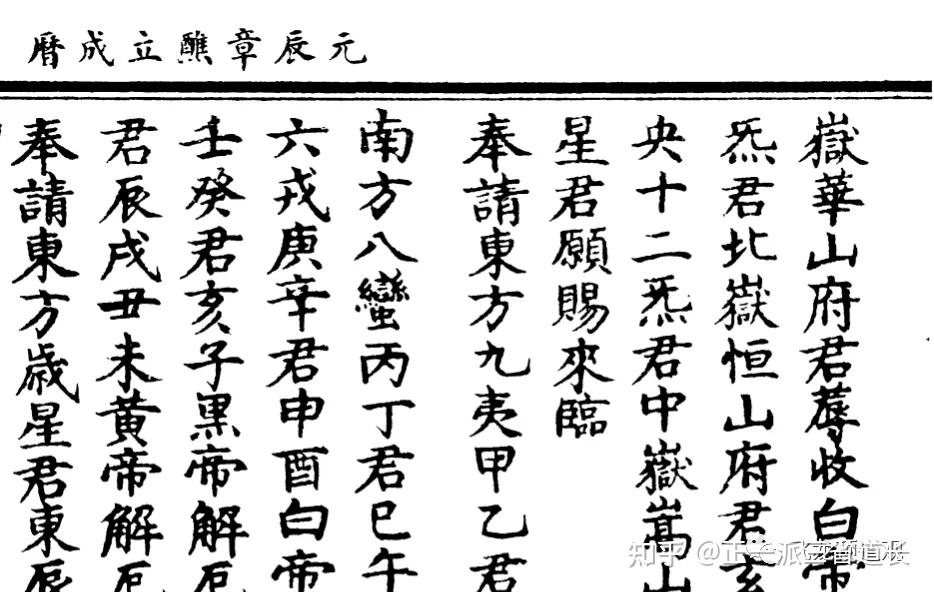 元辰章醮立成曆
嶽華山府君蓐收白帝
炁君北嶽恒山府君玄
央十二炁君中嶽嵩山
星君願賜來臨
奉請東方九夷甲乙君
南方八蠻丙丁君巳午
六戎庚辛君申酉白帝
壬癸君亥子黑帝解厄
君辰戌丑未黃帝解厄
奉請東方歲星君東辰
知乎 @正一派